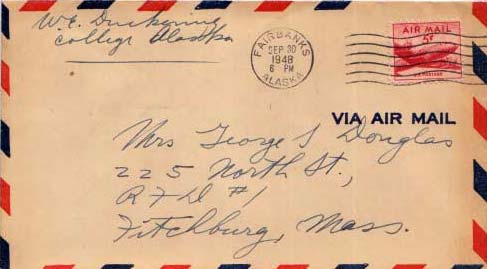 W.E. Duckering
College Alaska
FAIRBANKS
SEP 30
1948
6 PM
ALASKA
AIR MAIL
5¢
U.S. POSTAGE
VIA AIR MAIL
Mrs George S Douglas
225 North St.,
RFD #1
Fitchburg, Mass.